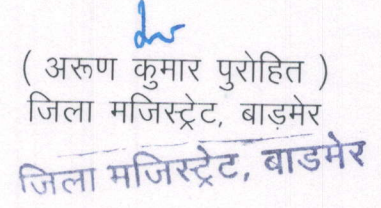 ( अरूण कुमार पुरोहित )
जिला मजिस्ट्रेट, बाड़मेर
जिला मजिस्ट्रेट, बाडमेर